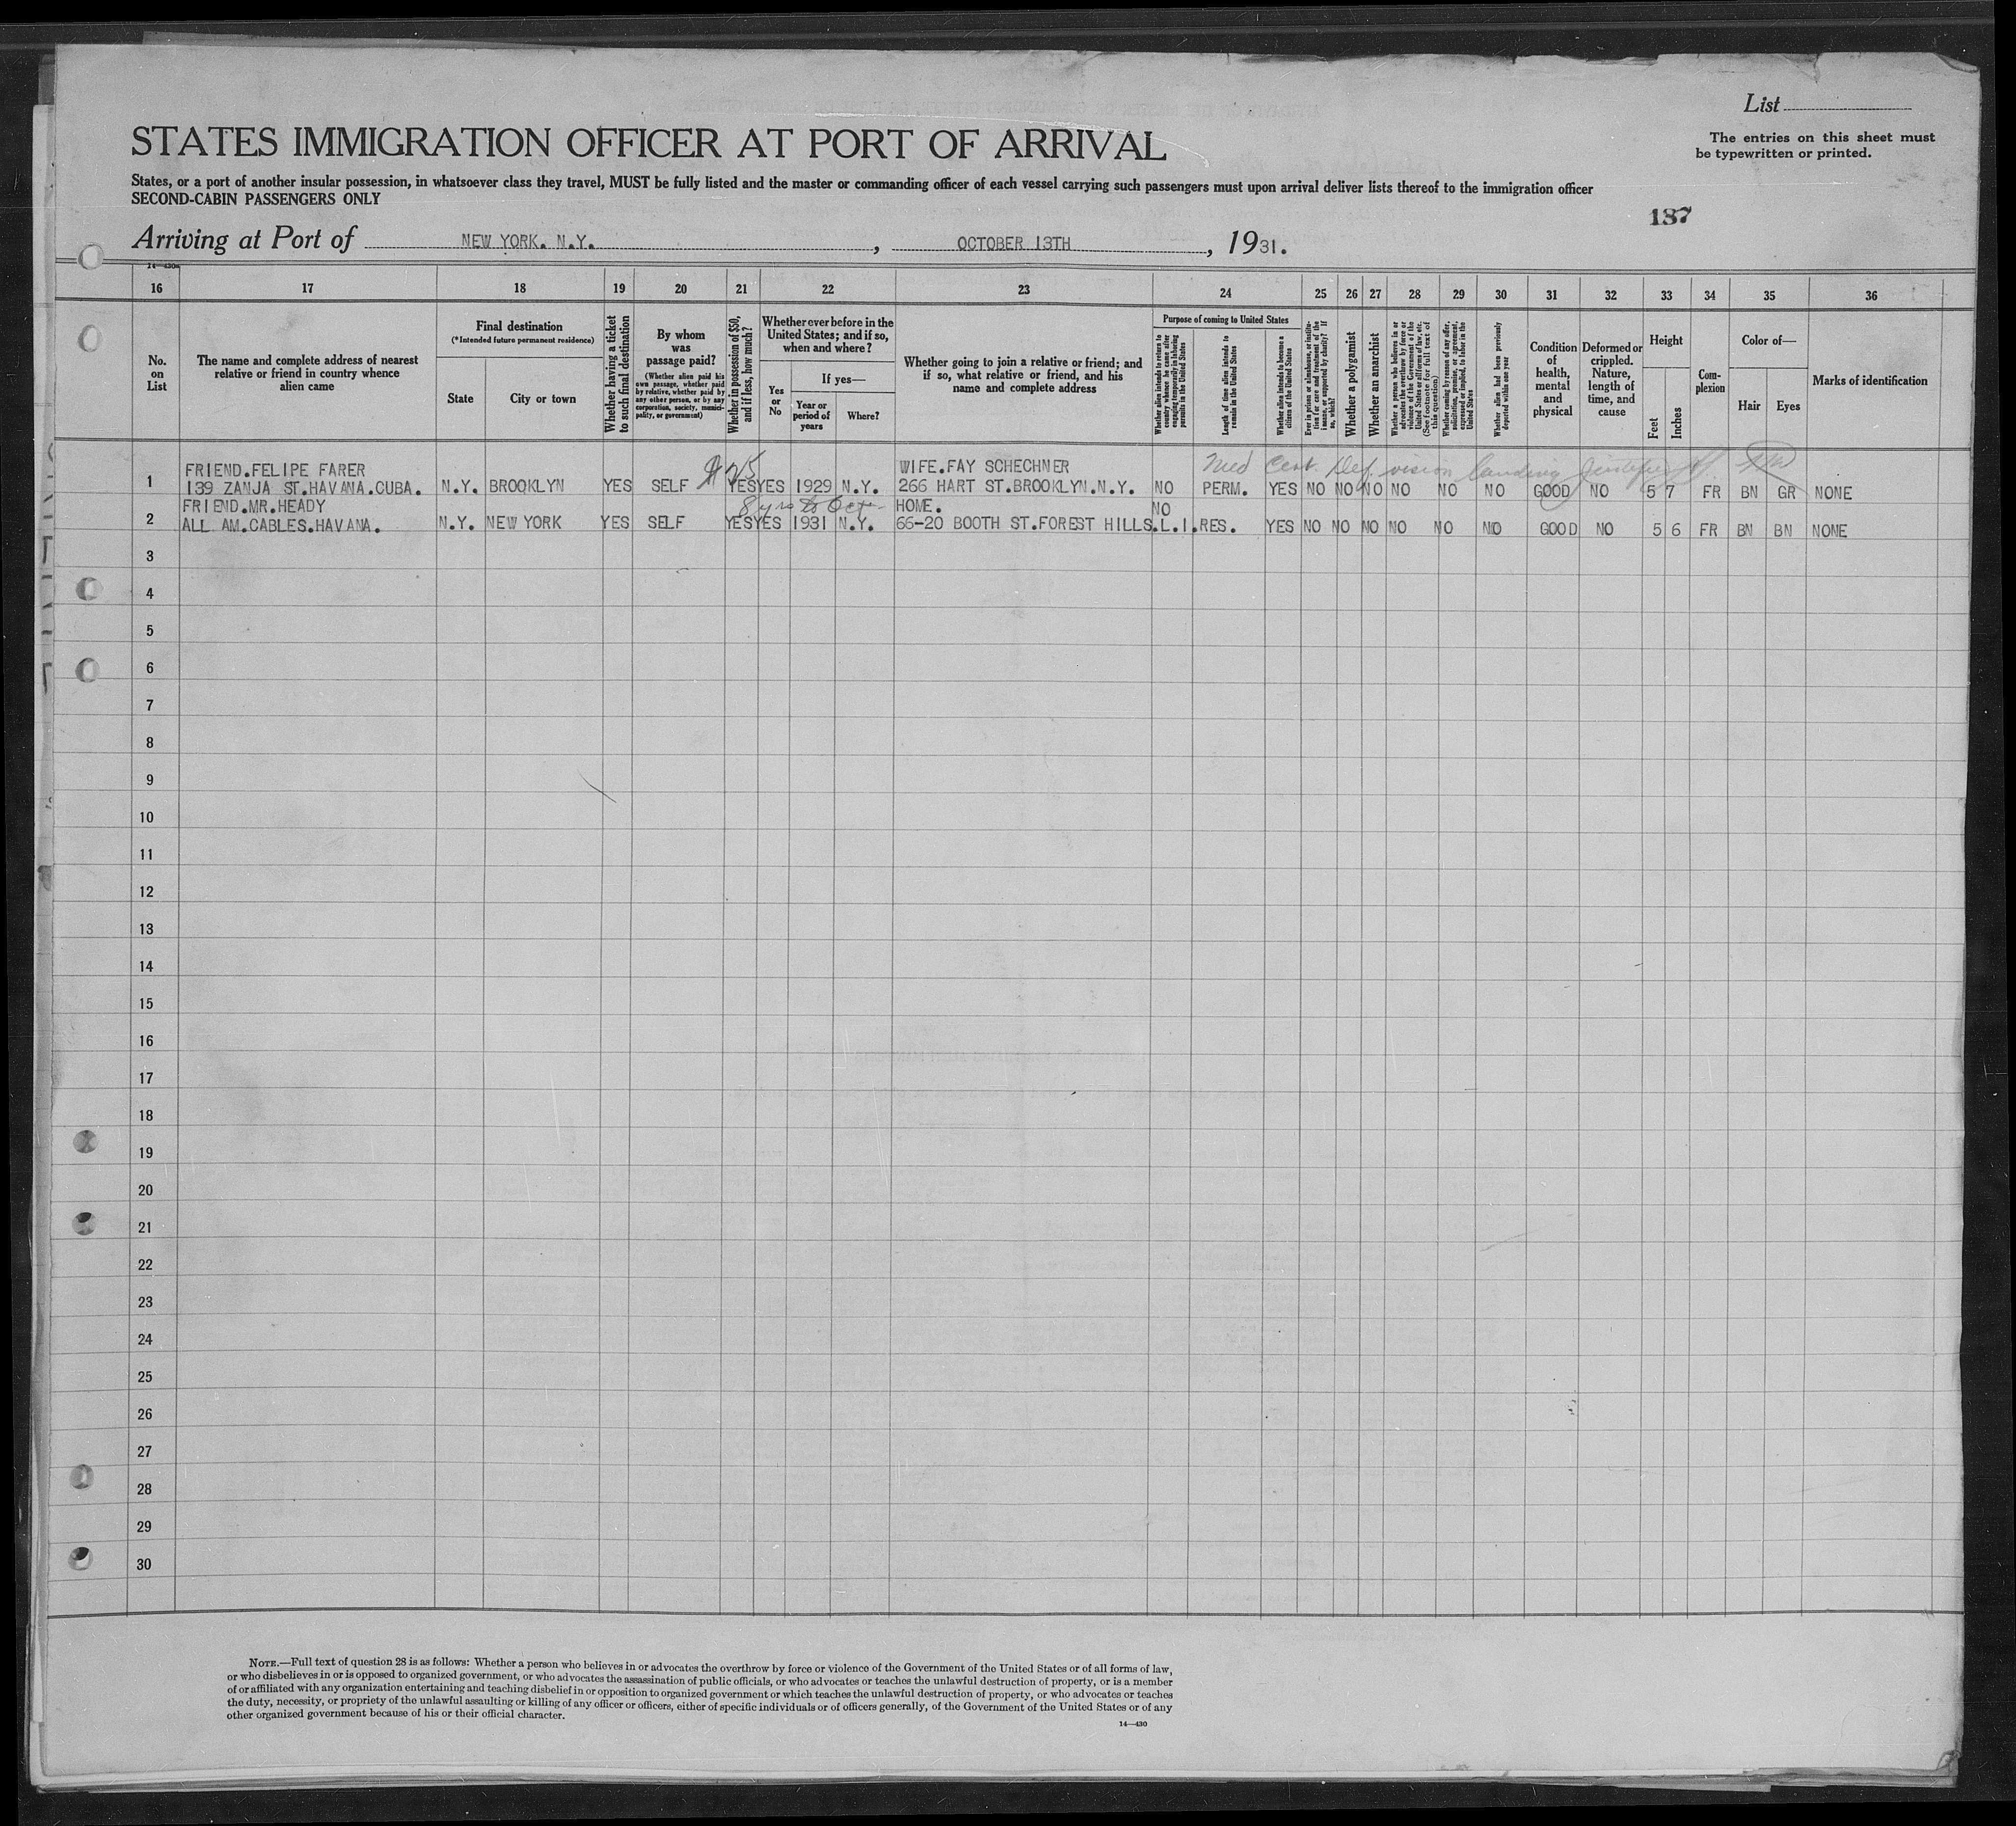 List
The entries on this sheet must
be typewritten or printed.
STATES IMMIGRATION OFFICER AT PORT OF ARRIVAL
States, or a port of another insular possession, in whatsoever class they travel, MUST be fully listed and the master or commanding officer of each vessel carrying such passengers must upon arrival deliver lists thereof to the immigration officer
SECOND-CABIN PASSENGERS ONLY
137
Arriving at Port of NEW YORK. N.Y. , OCTOBER 13TH , 1931.
14—430
16 17 18 19 20 21 22 23 24 25 26 27 28 29 30 31 32 33 34 35 36
No.
on
List
The name and complete address of nearest
relative or friend in country whence
alien came
Final destination
(*Intended future permanent residence)
State
City or town
Whether having a ticket
to such final destination
By whom
was
passage paid?
(Whether alien paid his
own passage, whether paid
by relative, whether paid by
any other person, or by any
corporation, society, munici-
pality, or government)
Whether in possession of $50,
and if less, how much?
Whether ever before in the
United States; and if so,
when and where?
Yes
or
No
If yes—
Year or
period of
years
Where?
Whether going to join a relative or friend; and
if so, what relative or friend, and his
name and complete address
Purpose of coming to United States
Whether alien intends to return to
country whence he came after
engaging temporarily in laboring
pursuits in the United States
Length of time alien intends to
remain in the United States
Whether alien intends to become a
citizen of the United States
Ever in prison or almshouse, or institu-
tion for care and treatment of the
insane, or supported by charity? If
so, which?
Whether a polygamist
Whether an anarchist
Whether a person who believes in or
advocates the overthrow by force or
violence of the Government of the
United States or all forms of law, etc.
(See footnote for full text of
this question)
Whether coming by reason of any offer,
solicitation, promise, or agreement,
expressed or implied, to labor in the
United States
Whether alien had been previously
deported within one year
Condition
of
health,
mental
and
physical
Deformed or
crippled.
Nature,
length of
time, and
cause
Height
Feet
Inches
Com-
plexion
Color of—
Hair
Eyes
Marks of identification
Med Cert. Def vision landing
FRIEND.FELIPE FARER $25 WIFE.FAY SCHECHNER
1 139 ZANJA ST.HAVANA.CUBA. N.Y. BROOKLYN YES SELF YES YES 1929 N.Y. 266 HART ST.BROOKLYN.N.Y. NO PERM. YES NO NO NO NO NO NO GOOD NO 5 7 FR BN GR NONE
FRIEND.MR.HEADY 8 yrs to Oct HOME. NO
2 ALL AM.CABLES.HAVANA. N.Y. NEW YORK YES SELF YES YES 1931 N.Y. 66-20 BOOTH ST.FOREST HILLS.L.I. RES. YES NO NO NO NO NO NO GOOD NO 5 6 FR BN BN NONE
3
4
5
6
7
8
9
10
11
12
13
14
15
16
17
18
19
20
21
22
23
24
25
26
27
28
29
30
NOTE.—Full text of question 28 is as follows: Whether a person who believes in or advocates the overthrow by force or violence of the Government of the United States or of all forms of law,
or who disbelieves in or is opposed to organized government, or who advocates the assassination of public officials, or who advocates or teaches the unlawful destruction of property, or is a member
of or affiliated with any organization entertaining and teaching disbelief in or opposition to organized government or which teaches the unlawful destruction of property, or who advocates or teaches
the duty, necessity, or propriety of the unlawful assaulting or killing of any officer or officers, either of specific individuals or of officers generally, of the Government of the United States or of any
other organized government because of his or their official character.
14—430